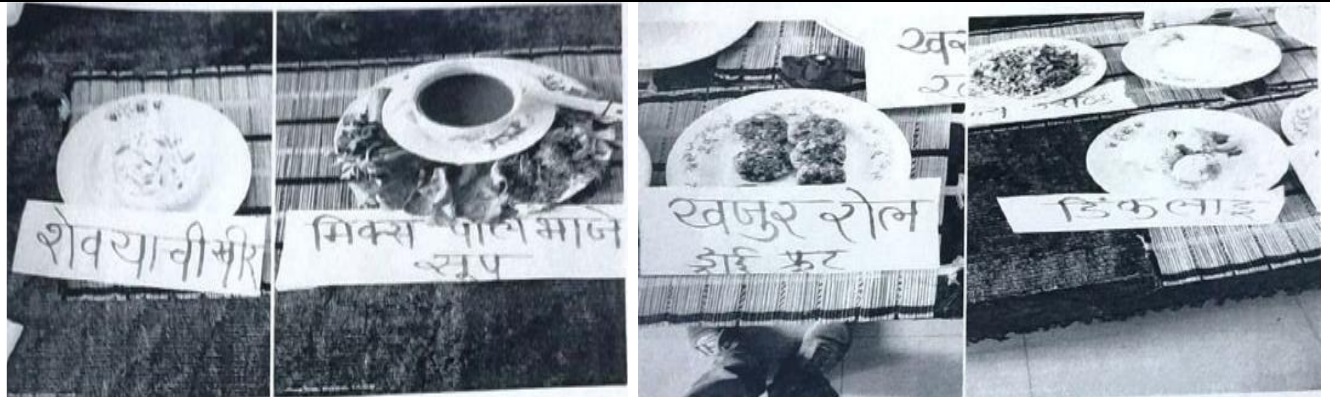 शेवयाची खीर
मिक्स पाले भाजी
सूप
खजुर रोल
ड्राई फ्रुट
डिंक लाडू